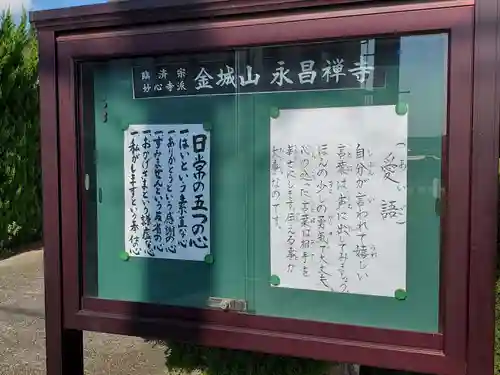 臨済宗
妙心寺派
金城山 永昌禅寺
日常の五つの心
一はいという素直な心
一ありがとうという感謝の心
一すみませんという反省の心
一おかげさまという謙虚な心
一私がしますという奉仕の心
愛語
(あいご)
自分が言われて嬉しい
言葉は声に出してみましょう
ほんの少しの勇気で大丈夫
心の込った言葉は相手を
幸せにします 伝える事が
大事なのです。